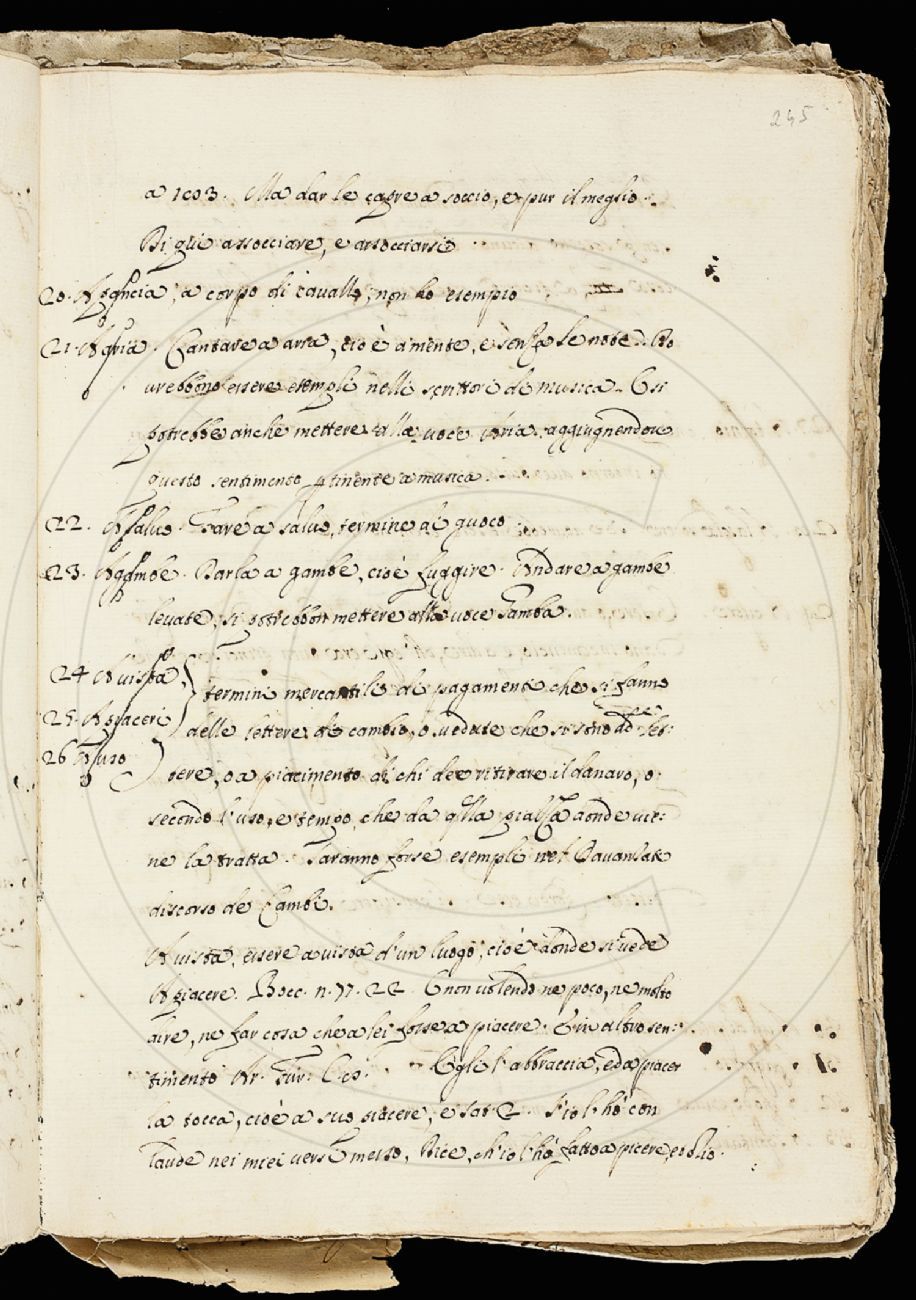 245
a 103. Ma dar le capre a soccio, e pur il meglio.
Di qui assocciare, e assocciarsi
20. A a corpo di cavallo, non ho esempio
21. Aaria. Cantare a aria, cioè a mente, e senza le note. Do
urebbono essere esempli nelli scrittori di musica. E si
potrebbe anche mettere alla voce Aria. aggiugnendou
questo sentimento ꝑtinente a musica.
22. A salvo. Fare a salvo, termine di giuoco
23. A gambe. Darla a gambe, cioè fuggire. Andare a gambe
levate, si potrebbon mettere alla voce Gamba.
24 A vista
termini mercantili di pagamenti che si fanno
25. A piaceri
delle lettere di cambio, o vedute che si sono ad
26 A uso
sere, o a piacimento di chi dee ritirare il danaro, o
secondo l'uso, e tempo che da qlla piazza donde vie:
ne la tratta. Saranno forse esempli nel Davanzati
discorso de Cambi.
A vista, essere a vista d'un luogo, cioè donde si vede
A piacere. Bocc. n. 77. 22. E non volendo ne poco, ne molto
dire, ne far cosa che a lei fosse a piacere. E in altro sen:
timento Ar. Fur. C. Egli l'abbraccia, ed a piacer
la tocca, cioè a suo piacere, e sat. 2. S'io l'hò con
laude nei miei versi messo, Dice, ch'io l'hò fatto a piacere,